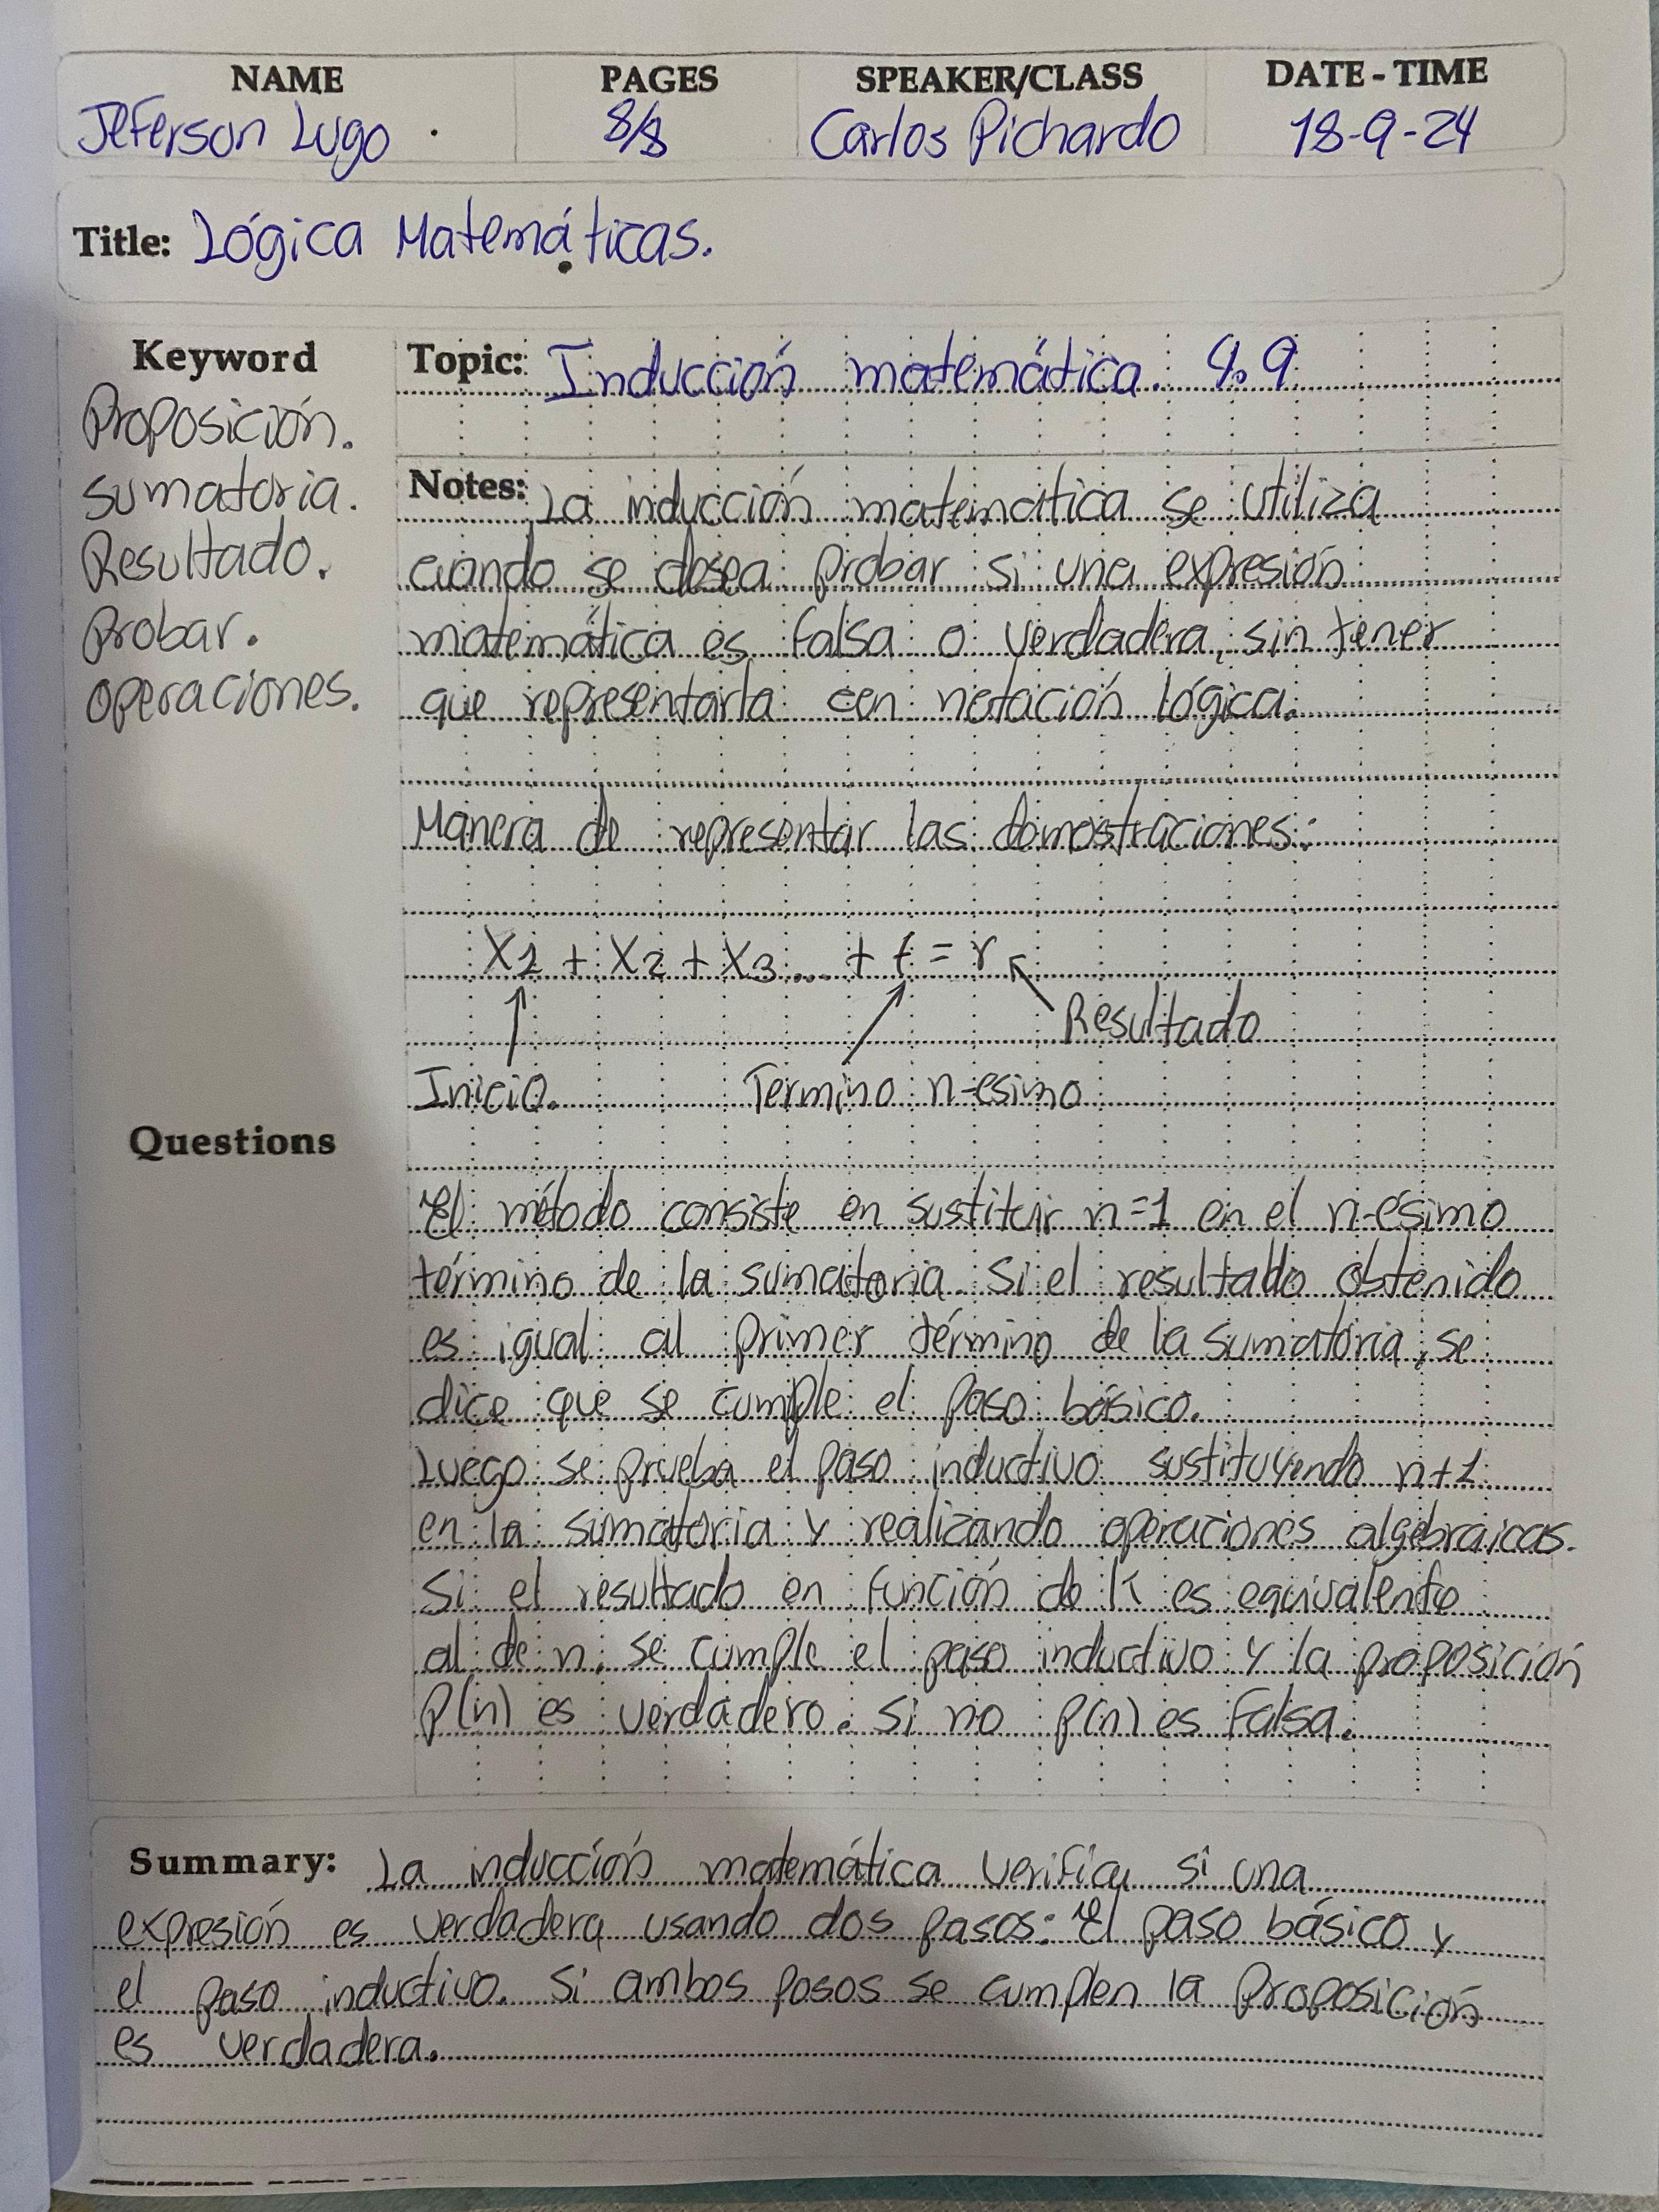 NAME PAGES SPEAKER/CLASS DATE - TIME
Jeferson Lugo . 8/8 Carlos Pichardo 18-9-24
Title: Lógica Matemáticas.
Keyword
Proposición.
sumatoria.
Resultado.
Probar.
operaciones.
Topic: Inducción matemática. 4.9
Notes: La inducción matemática se utiliza
cuando se desea probar si una expresión
matemática es falsa o verdadera, sin tener
que representarla con notación lógica.
Manera de representar las demostraciones:
X1 + X2 + X3 ... + t = r
Resultado
Inicio. Termino n-esimo
Questions
El método consiste en sustituir n=1 en el n-ésimo
término de la sumatoria. Si el resultado obtenido
es igual al primer término de la sumatoria, se
dice que se cumple el paso básico.
Luego se prueba el paso inductivo sustituyendo n+1
en la sumatoria y realizando operaciones algebraicas.
Si el resultado en función de K es equivalente
al de n, se cumple el paso inductivo y la proposición
P(n) es verdadero. Si no P(n) es Falsa.
Summary: La inducción matemática verifica si una
expresión es verdadera usando dos pasos: El paso básico y
el paso inductivo. Si ambos pasos se cumplen la Proposición
es verdadera.